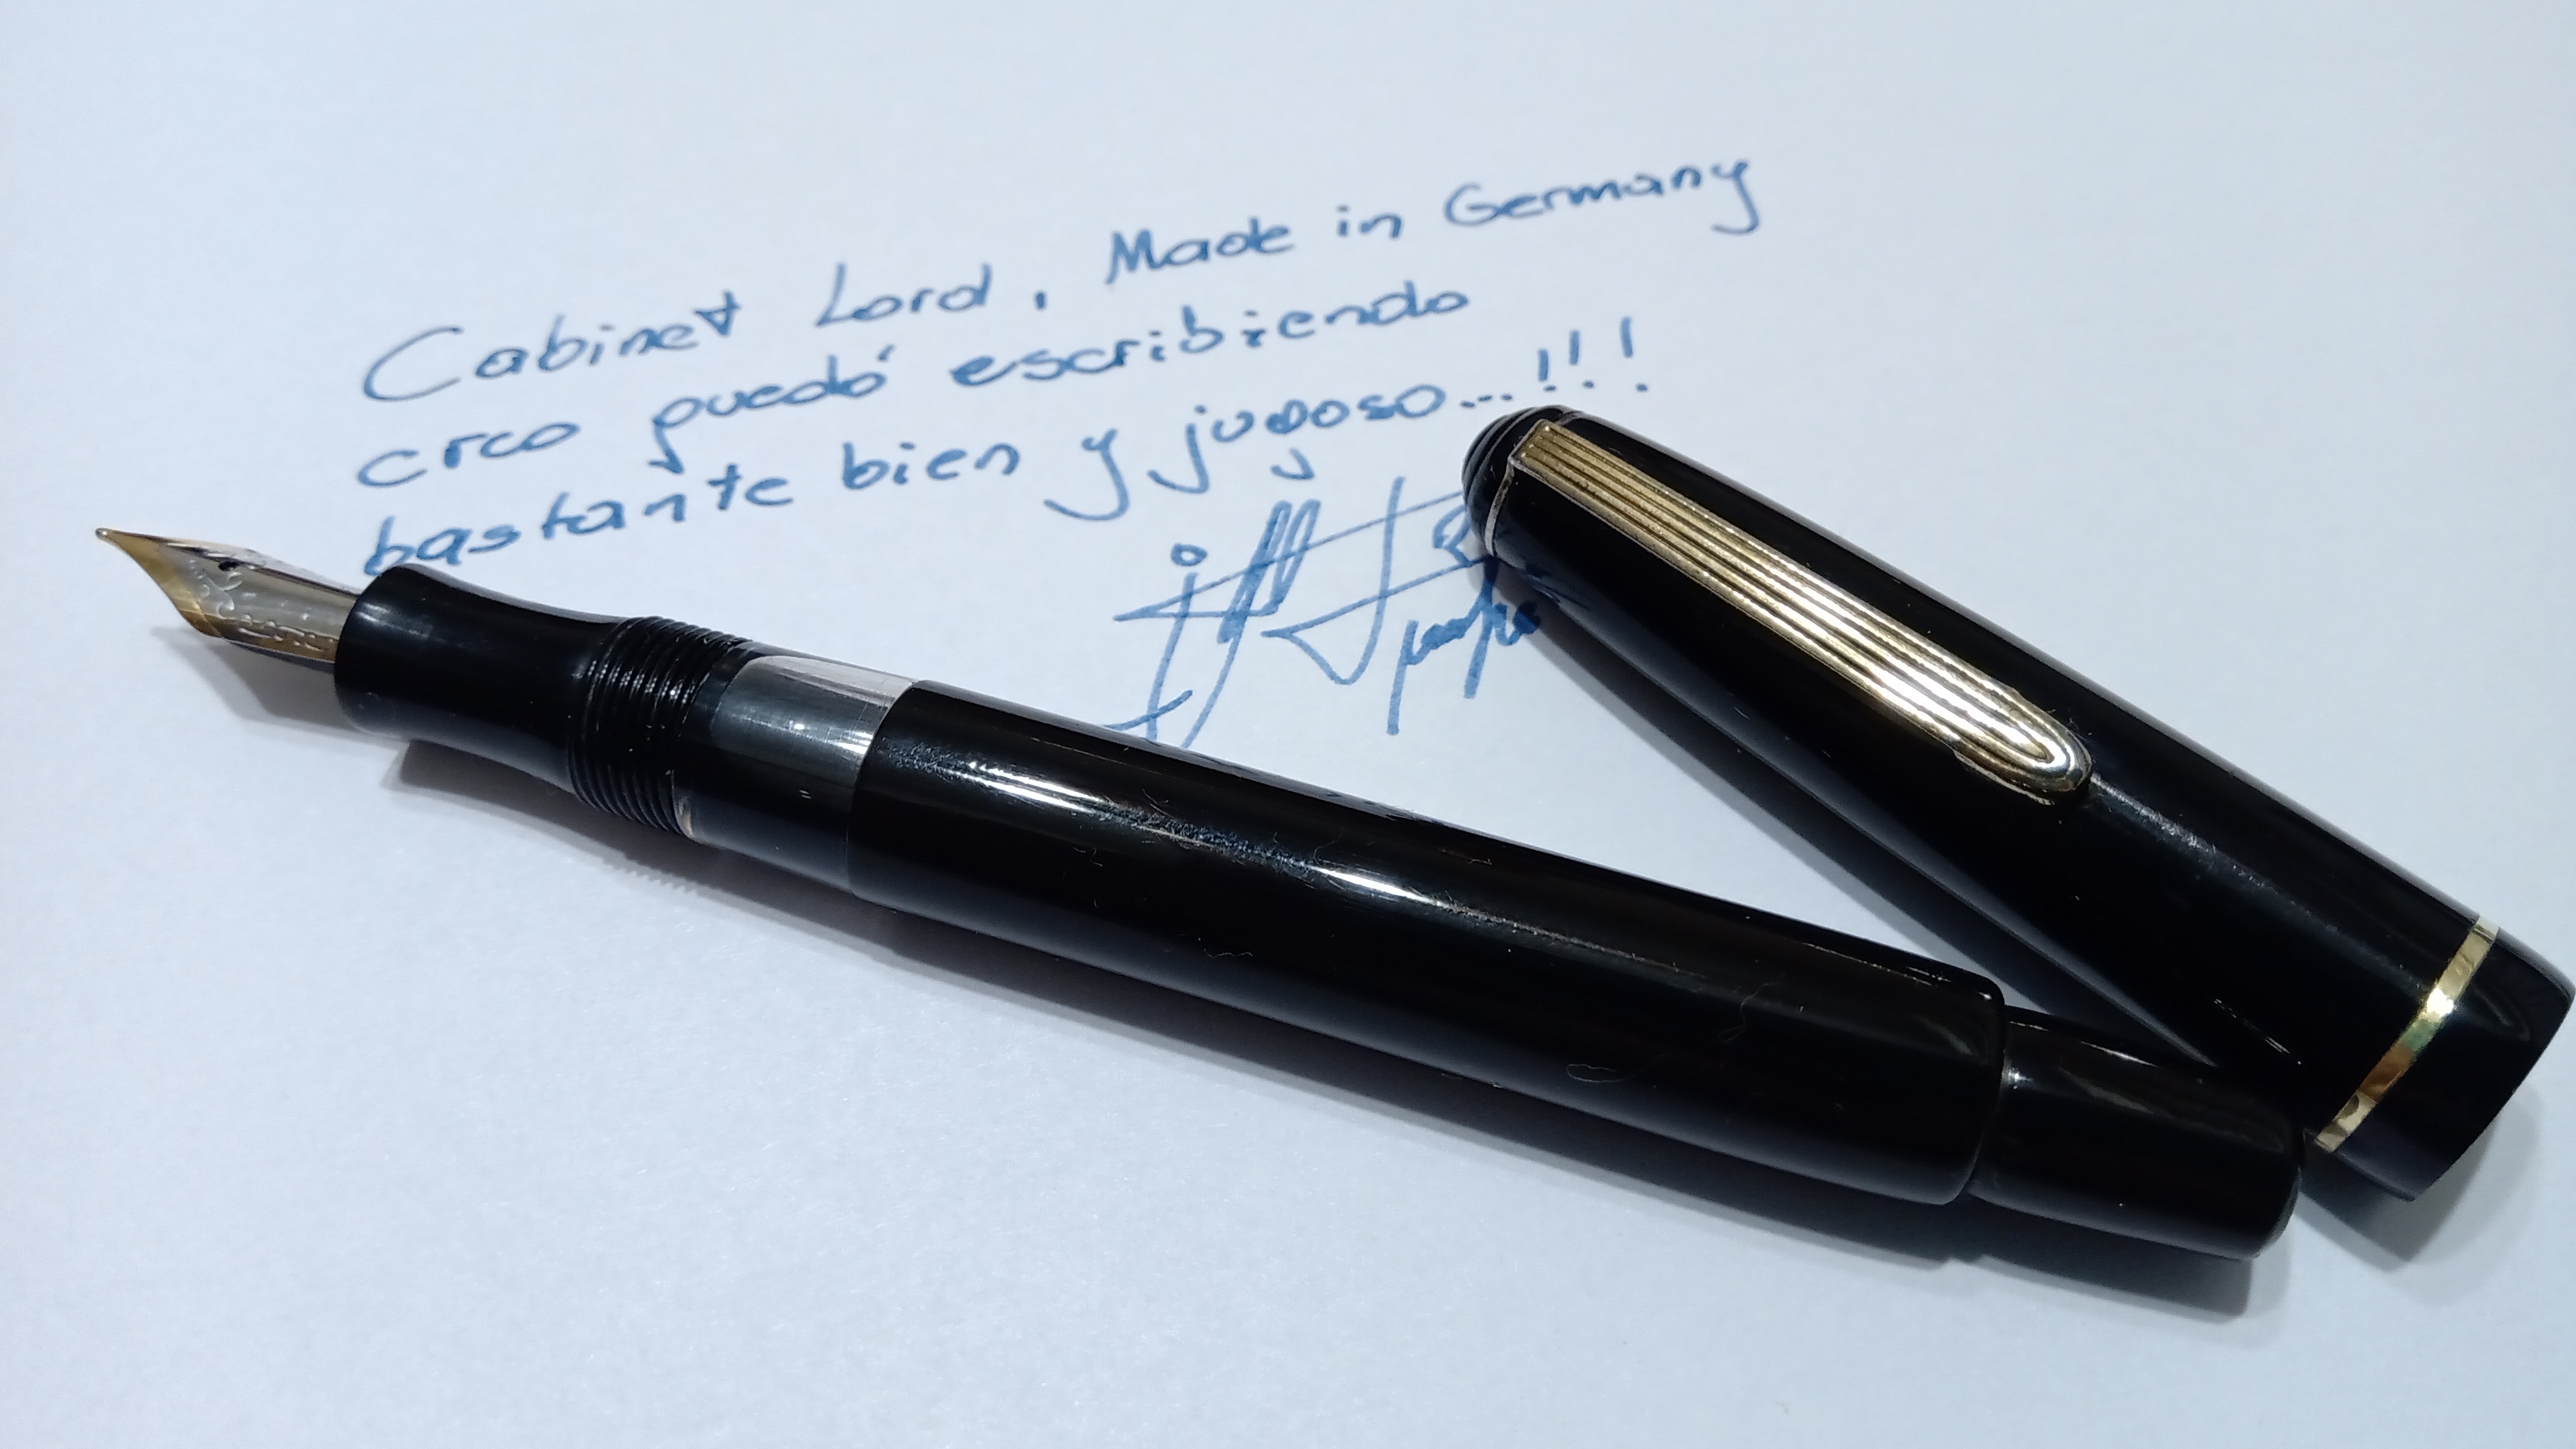 Cabinet Lord, Made in Germany
creo puedó escribiendo
bastante bien y jugoso...!!!